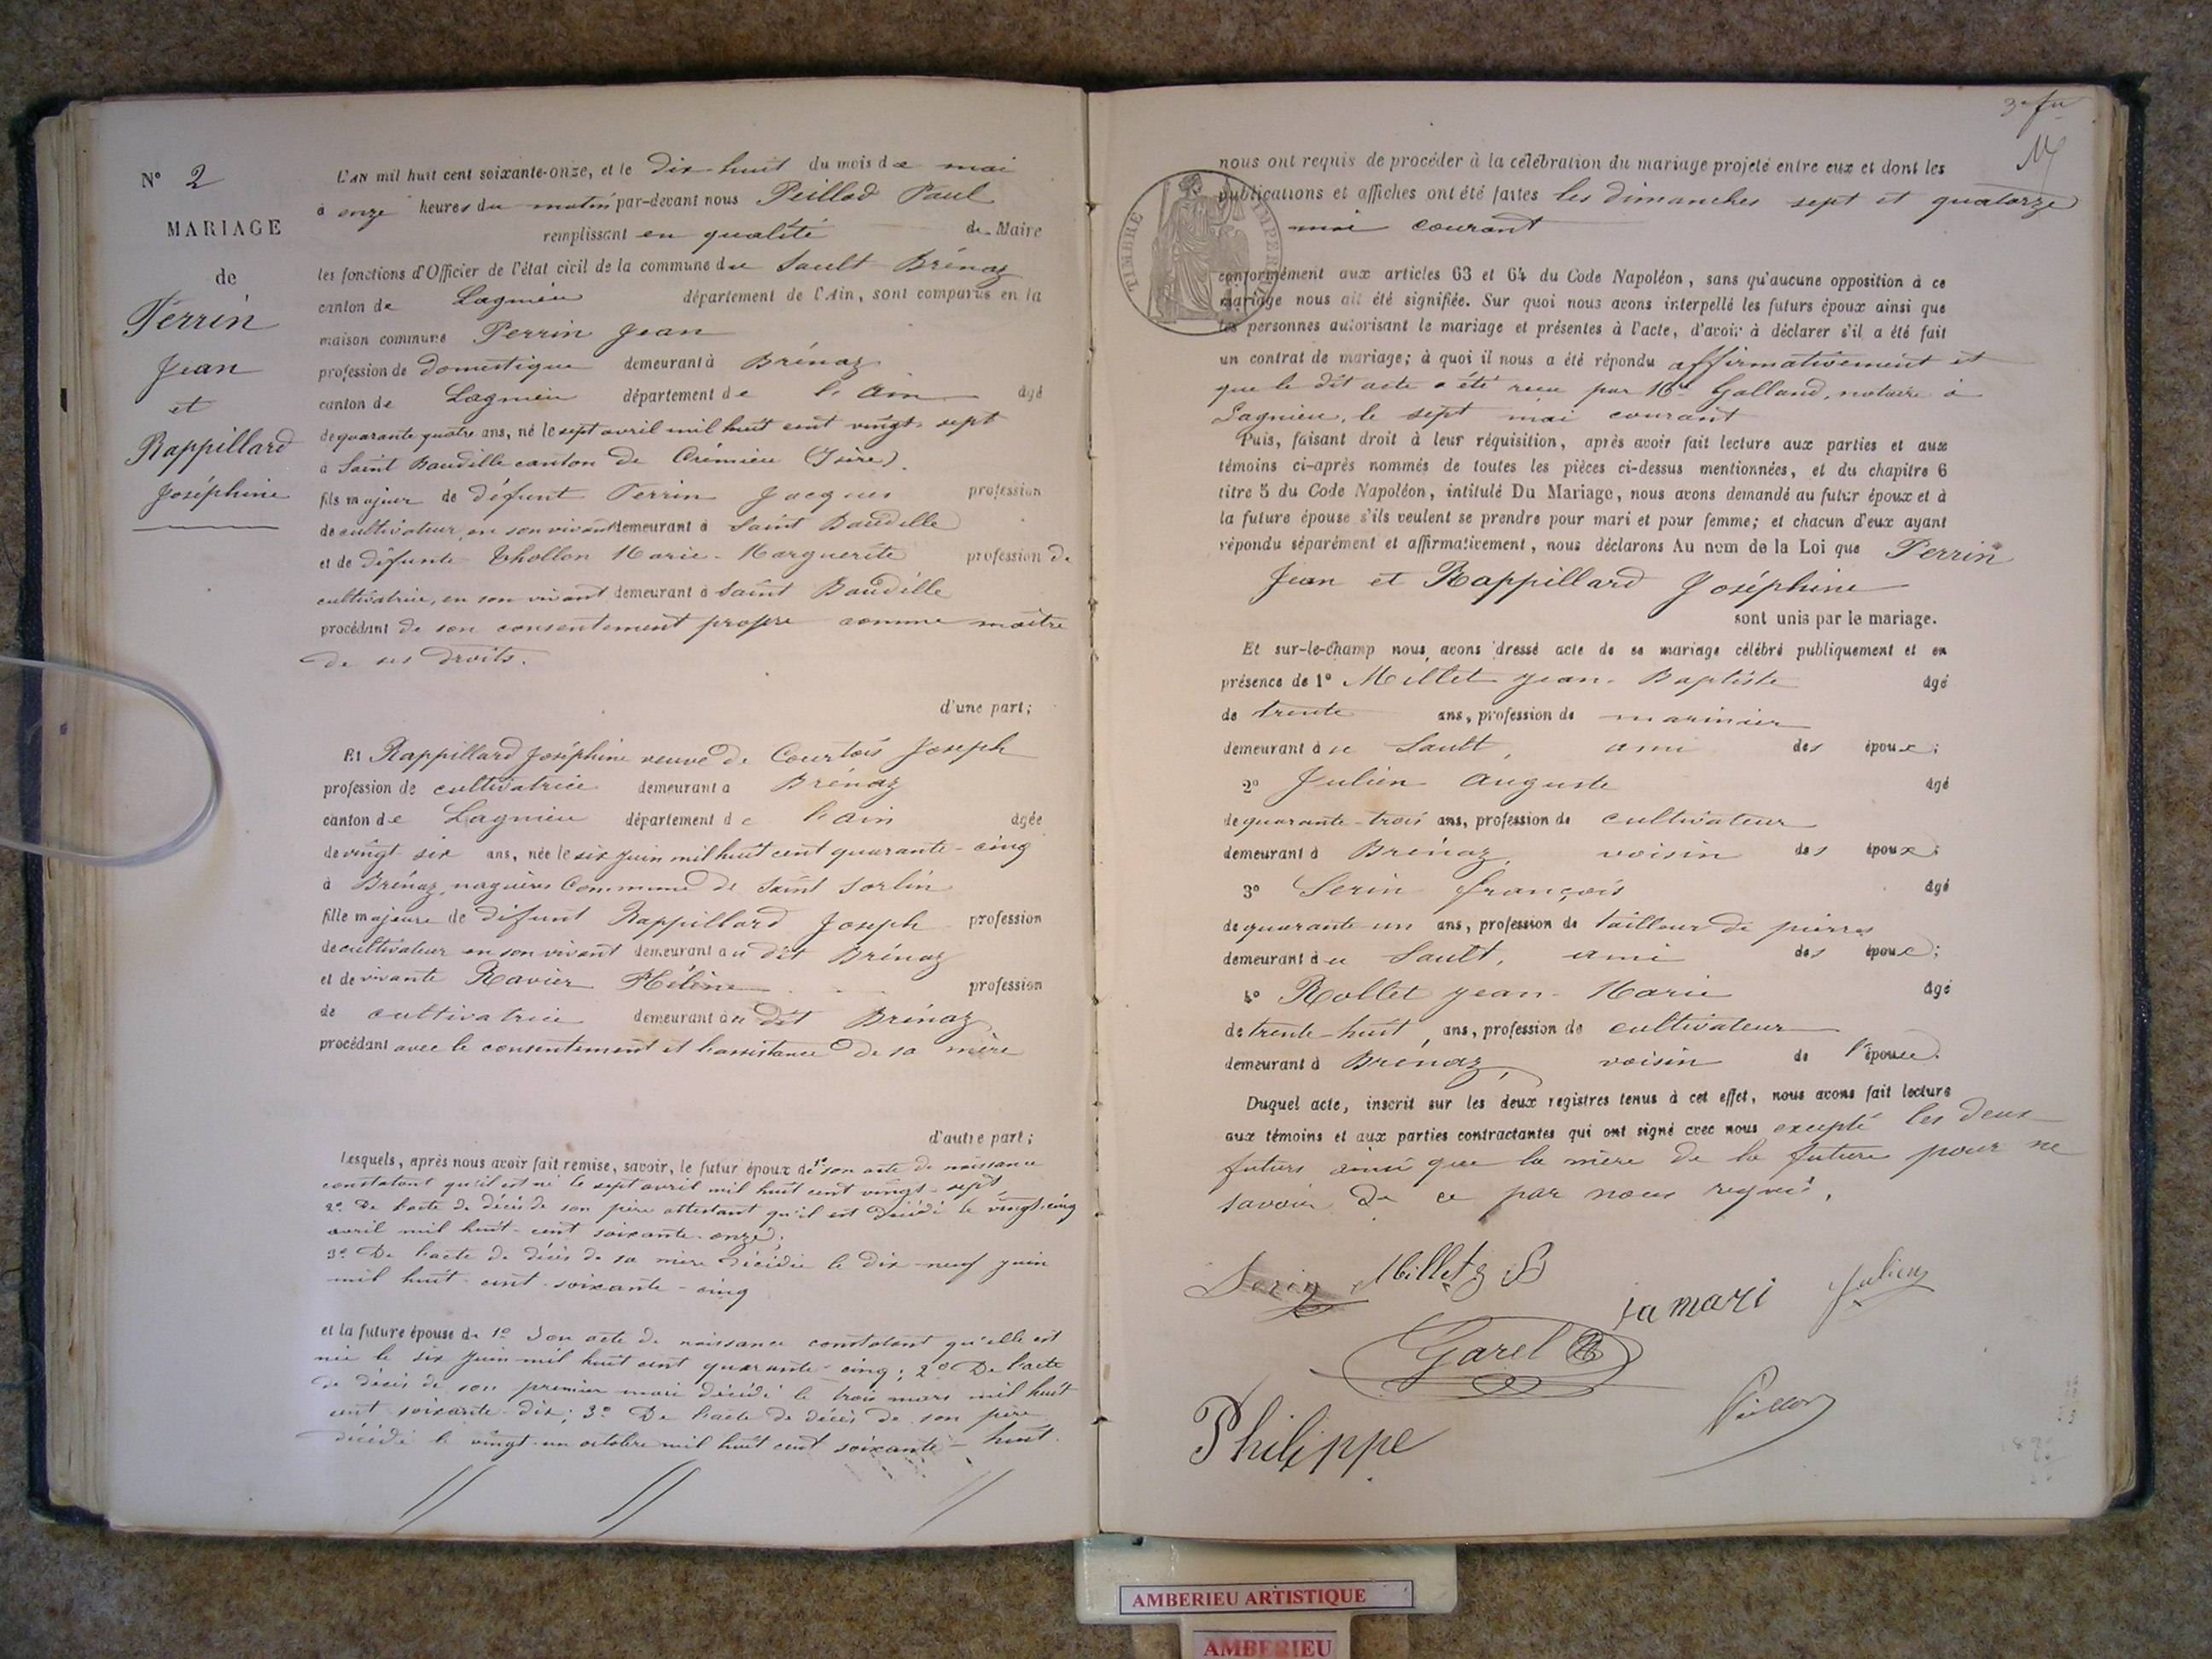 N° 2
MARIAGE
de
Perrin
Jean
et
Rappillard
Joséphine
L'AN mil huit cent soixante-onze, et le dix-huit du mois de mai
à onze heures du matin par-devant nous Peillod Paul
remplissant en qualité de Maire
les fonctions d'Officier de l'état civil de la commune du Sault-Brénaz
canton de Lagnieu département de l'Ain, sont comparus en la
maison commune Perrin Jean
profession de domestique demeurant à Brénaz
canton de Lagnieu département de l'Ain âgé
de quarante quatre ans, né le sept avril mil huit cent vingt-sept
à Saint Baudille canton de Crémieu (Isère).
fils majeur de défunt Perrin Jacques profession
de cultivateur, en son vivant demeurant à Saint Baudille
et de défunte Thollon Marie-Marguerite profession de
cultivatrice, en son vivant demeurant à Saint Baudille
procédant de son consentement propre comme maître
de ses droits.
d'une part;
Et Rappillard Joséphine veuve de Courtois Joseph
profession de cultivatrice demeurant à Brénaz
canton de Lagnieu département de l'ain âgée
de vingt-six ans, née le six juin mil huit cent quarante-cinq
à Brénaz, naguères Commune de Saint Sorlin
fille majeure de défunt Rappillard Joseph profession
de cultivateur en son vivant demeurant au dit Brénaz
et de vivante Ravier Hélène profession
de cultivatrice demeurant au dit Brénaz,
procédant avec le consentement et l'assistance de sa mère
d'autre part;
Lesquels, après nous avoir fait remise, savoir, le futur époux de 1° son acte de naissance
constatant qu'il est né le sept avril mil huit cent vingt-sept
2° De l'acte de décès de son père attestant qu'il est décédé le vingt-cinq
avril mil huit-cent soixante-onze;
3° De l'acte de décès de sa mère décédée le dix-neuf juin
mil huit-cent-soixante-cinq
et la future épouse de 1° Son acte de naissance constatant qu'elle est
née le six juin mil huit cent quarante-cinq; 2° De l'acte
de décès de son premier mari décédé le trois mars mil huit
cent soixante-dix; 3° De l'acte de décès de son père
décédé le vingt-un octobre mil huit cent soixante-huit.
TIMBRE IMPERIAL
nous ont requis de procéder à la célébration du mariage projeté entre eux et dont les
publications et affiches ont été faites les dimanches sept et quatorze
mai courant
conformément aux articles 63 et 64 du Code Napoléon, sans qu'aucune opposition à ce
mariage nous ait été signifiée. Sur quoi nous avons interpellé les futurs époux ainsi que
les personnes autorisant le mariage et présentes à l'acte, d'avoir à déclarer s'il a été fait
un contrat de mariage; à quoi il nous a été répondu affirmativement et
que le dit acte a été reçu par Me Galland, notaire à
Lagnieu, le sept mai courant
Puis, faisant droit à leur réquisition, après avoir fait lecture aux parties et aux
témoins ci-après nommés de toutes les pièces ci-dessus mentionnées, et du chapitre 6
titre 5 du Code Napoléon, intitulé Du Mariage, nous avons demandé au futur époux et à
la future épouse s'ils veulent se prendre pour mari et pour femme; et chacun d'eux ayant
répondu séparément et affirmativement, nous déclarons Au nom de la Loi que Perrin
Jean et Rappillard Joséphine
sont unis par le mariage.
Et sur-le-champ nous avons dressé acte de ce mariage célébré publiquement et en
présence de 1° Millet Jean-Baptiste âgé
de trente ans, profession de marinier
demeurant à u Sault, ami des époux;
2° Julien Auguste âgé
de quarante-trois ans, profession de cultivateur
demeurant à Brénaz, voisin des époux;
3° Serin françois âgé
de quarante-un ans, profession de tailleur de pierres
demeurant à u Sault, ami des époux;
4° Rollet Jean-Marie âgé
de trente-huit ans, profession de cultivateur
demeurant à Brénaz, voisin de l'épouse.
Duquel acte, inscrit sur les deux registres tenus à cet effet, nous avons fait lecture
aux témoins et aux parties contractantes qui ont signé avec nous excepté les deux
futurs ainsi que la mère de la future pour ne
savoir de ce par nous requis.
Serin Millet J B
ja mari Julien
Garel
Peillod
Philippe
AMBERIEU ARTISTIQUE
AMBERIEU